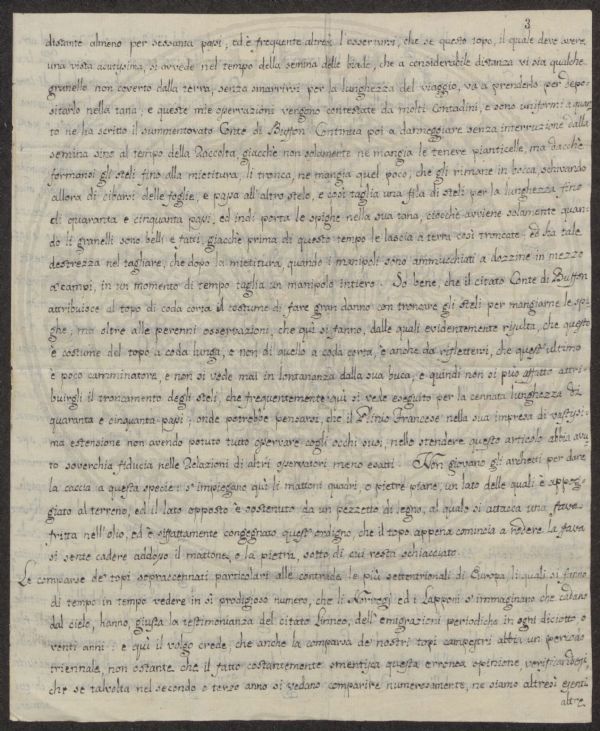 3
distante almeno per sessanta passi, ed è frequente altresì l'osservarsi, che se questo topo, il quale deve avere
una vista acutissima, si avvede nel tempo della semina delle biade, che a considerabile distanza vi sia qualche
granello non coverto dalla terra, senza smarrirsi per la lunghezza del viaggio, va a prenderlo per depo-
sitarlo nella tana; e queste mie osservazioni vengono contestate da molti Contadini, e sono uniformi a quan-
to ne ha scritto il summentovato Conte di Buffon. Continua poi a danneggiare senza interruzione dalla
semina sino al tempo della Raccolta, giacchè non solamente ne mangia le tenere pianticelle, ma dacchè
formansi gli steli fino alla mietitura, li tronca, ne mangia quel poco, che gli rimane in bocca, schivando
allora di cibarsi delle foglie, e passa all'altro stelo, e così taglia una fila di steli per la lunghezza fino
di quaranta e cinquanta passi, ed indi porta le spighe nella sua tana, ciocchè avviene solamente quan-
do li granelli sono belli e fatti, giacchè prima di questo tempo le lascia a terra così troncate: ed ha tale
destrezza nel tagliare, che dopo la mietitura, quando i manipoli sono ammucchiati a dozzine in mezzo
a' campi, in un momento di tempo taglia un manipolo intiero. So bene, che il citato Conte di Buffon
attribuisce al topo di coda corta il costume di fare gran danno con troncare gli steli per mangiarne le spi-
ghe; ma oltre alle perenni osservazioni, che quì si fanno, dalle quali evidentemente risulta, che questo
è costume del topo a coda lunga, e non di quello a coda corta, è anche da riflettersi, che quest'ultimo
è poco camminatore, e non si vede mai in lontananza dalla sua buca, e quindi non si può affatto attri-
buirgli il troncamento degli steli, che frequentemente quì si vede eseguito per la cennata lunghezza di
quaranta e cinquanta passi: onde potrebbe pensarsi, che il Plinio Francese nella sua impresa di vastissi-
ma estensione non avendo potuto tutto osservare cogli occhi suoi, nello stendere questo articolo abbia avu-
to soverchia fiducia nelle Relazioni di altri osservatori meno esatti. Non giovano gli archetti per dare
la caccia a questa specie: s'impiegano quì li mattoni quadri, e pietre piane, un lato delle quali è appog-
giato al terreno, ed il lato opposto è sostenuto da un pezzetto di legno, al quale si attacca una fava
fritta nell'olio, ed è siffattamente congegnato quest'ordigno, che il topo appena comincia a rodere la fava
si sente cadere addosso il mattone, o la pietra, sotto di cui resta schiacciato.
Le comparse de' topi soprascennati particolari alle contrade le più settentrionali di Europa, li quali si fanno
di tempo in tempo vedere in sì prodigioso numero, che li Norvegi ed i Lapponi s'immaginano che cadano
dal cielo, hanno, giusta la testimonianza del citato Linneo, dell'emigrazioni periodiche in ogni diciotto, o
venti anni: e quì il volgo crede, che anche la comparsa de' nostri topi campestri abbia un periodo
triennale, non ostante che il fatto costantemente smentisca questa erronea opinione, verificandosi,
che se talvolta nel secondo o terzo anno si vedano comparire numerosamente, ne siamo altresì esenti
altre